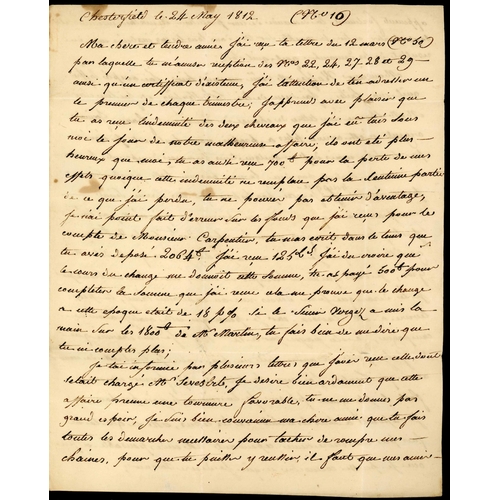 Chesterfield le 24 May 1812. (N.º 16)
Ma chere et tendre amie j'ai reçu ta lettre du 12 mars (Nº 30)
par laquelle tu m'accuse reception des Nos 22, 24, 27. 28 et 29
ainsi qu'un certificat d'existence, j'ai l'attention de t'en adresser un
le premier de chaque trimestre; J'apprends avec plaisir que
tu as reçu l'indemnité des deux chevaux que j'ai eu tués sous
moi le jour de notre malheureuse affaire, ils ont été plus
heureux que moi; tu as aussi reçu 700tt pour la perte de mes
effets quoique cette indemnité ne remplace pas la centieme partie
de ce que j'ai perdu, tu ne pouvez pas obtenir d'avantage,
Je n'ai point fait d'erreur sur les fonds que j'ai reçus pour le
compte de Monsieur Carpentier, tu m'as ecrit dans le tems que
tu avés deposé 2064tt. J'ai reçu 125 j'ai du croire que
le cours du change me donnoit cette somme, tu as payé 500tt pour
completter la somme que j'ai reçue cela me prouve que le change
a cette epoque etait de 18 p%, si le Sieur a mis la
main sur les 1800tt de Mr. Martin, tu fais bien de me dire que
tu n'y comptes plus;
Je t'ai informée par plusieurs lettres que j'avés reçu celle dont
s'etait chargé Mr. je desire bien ardament que cette
affaire prenne une tournure favorable, tu ne me donnes pas
grand espoir, je suis bien convaincu ma chere amie que tu fais
toutes les demarches necessaires pour tacher de rompre mes
chaines, pour que tu puisses y reussir, il faut que nos amis